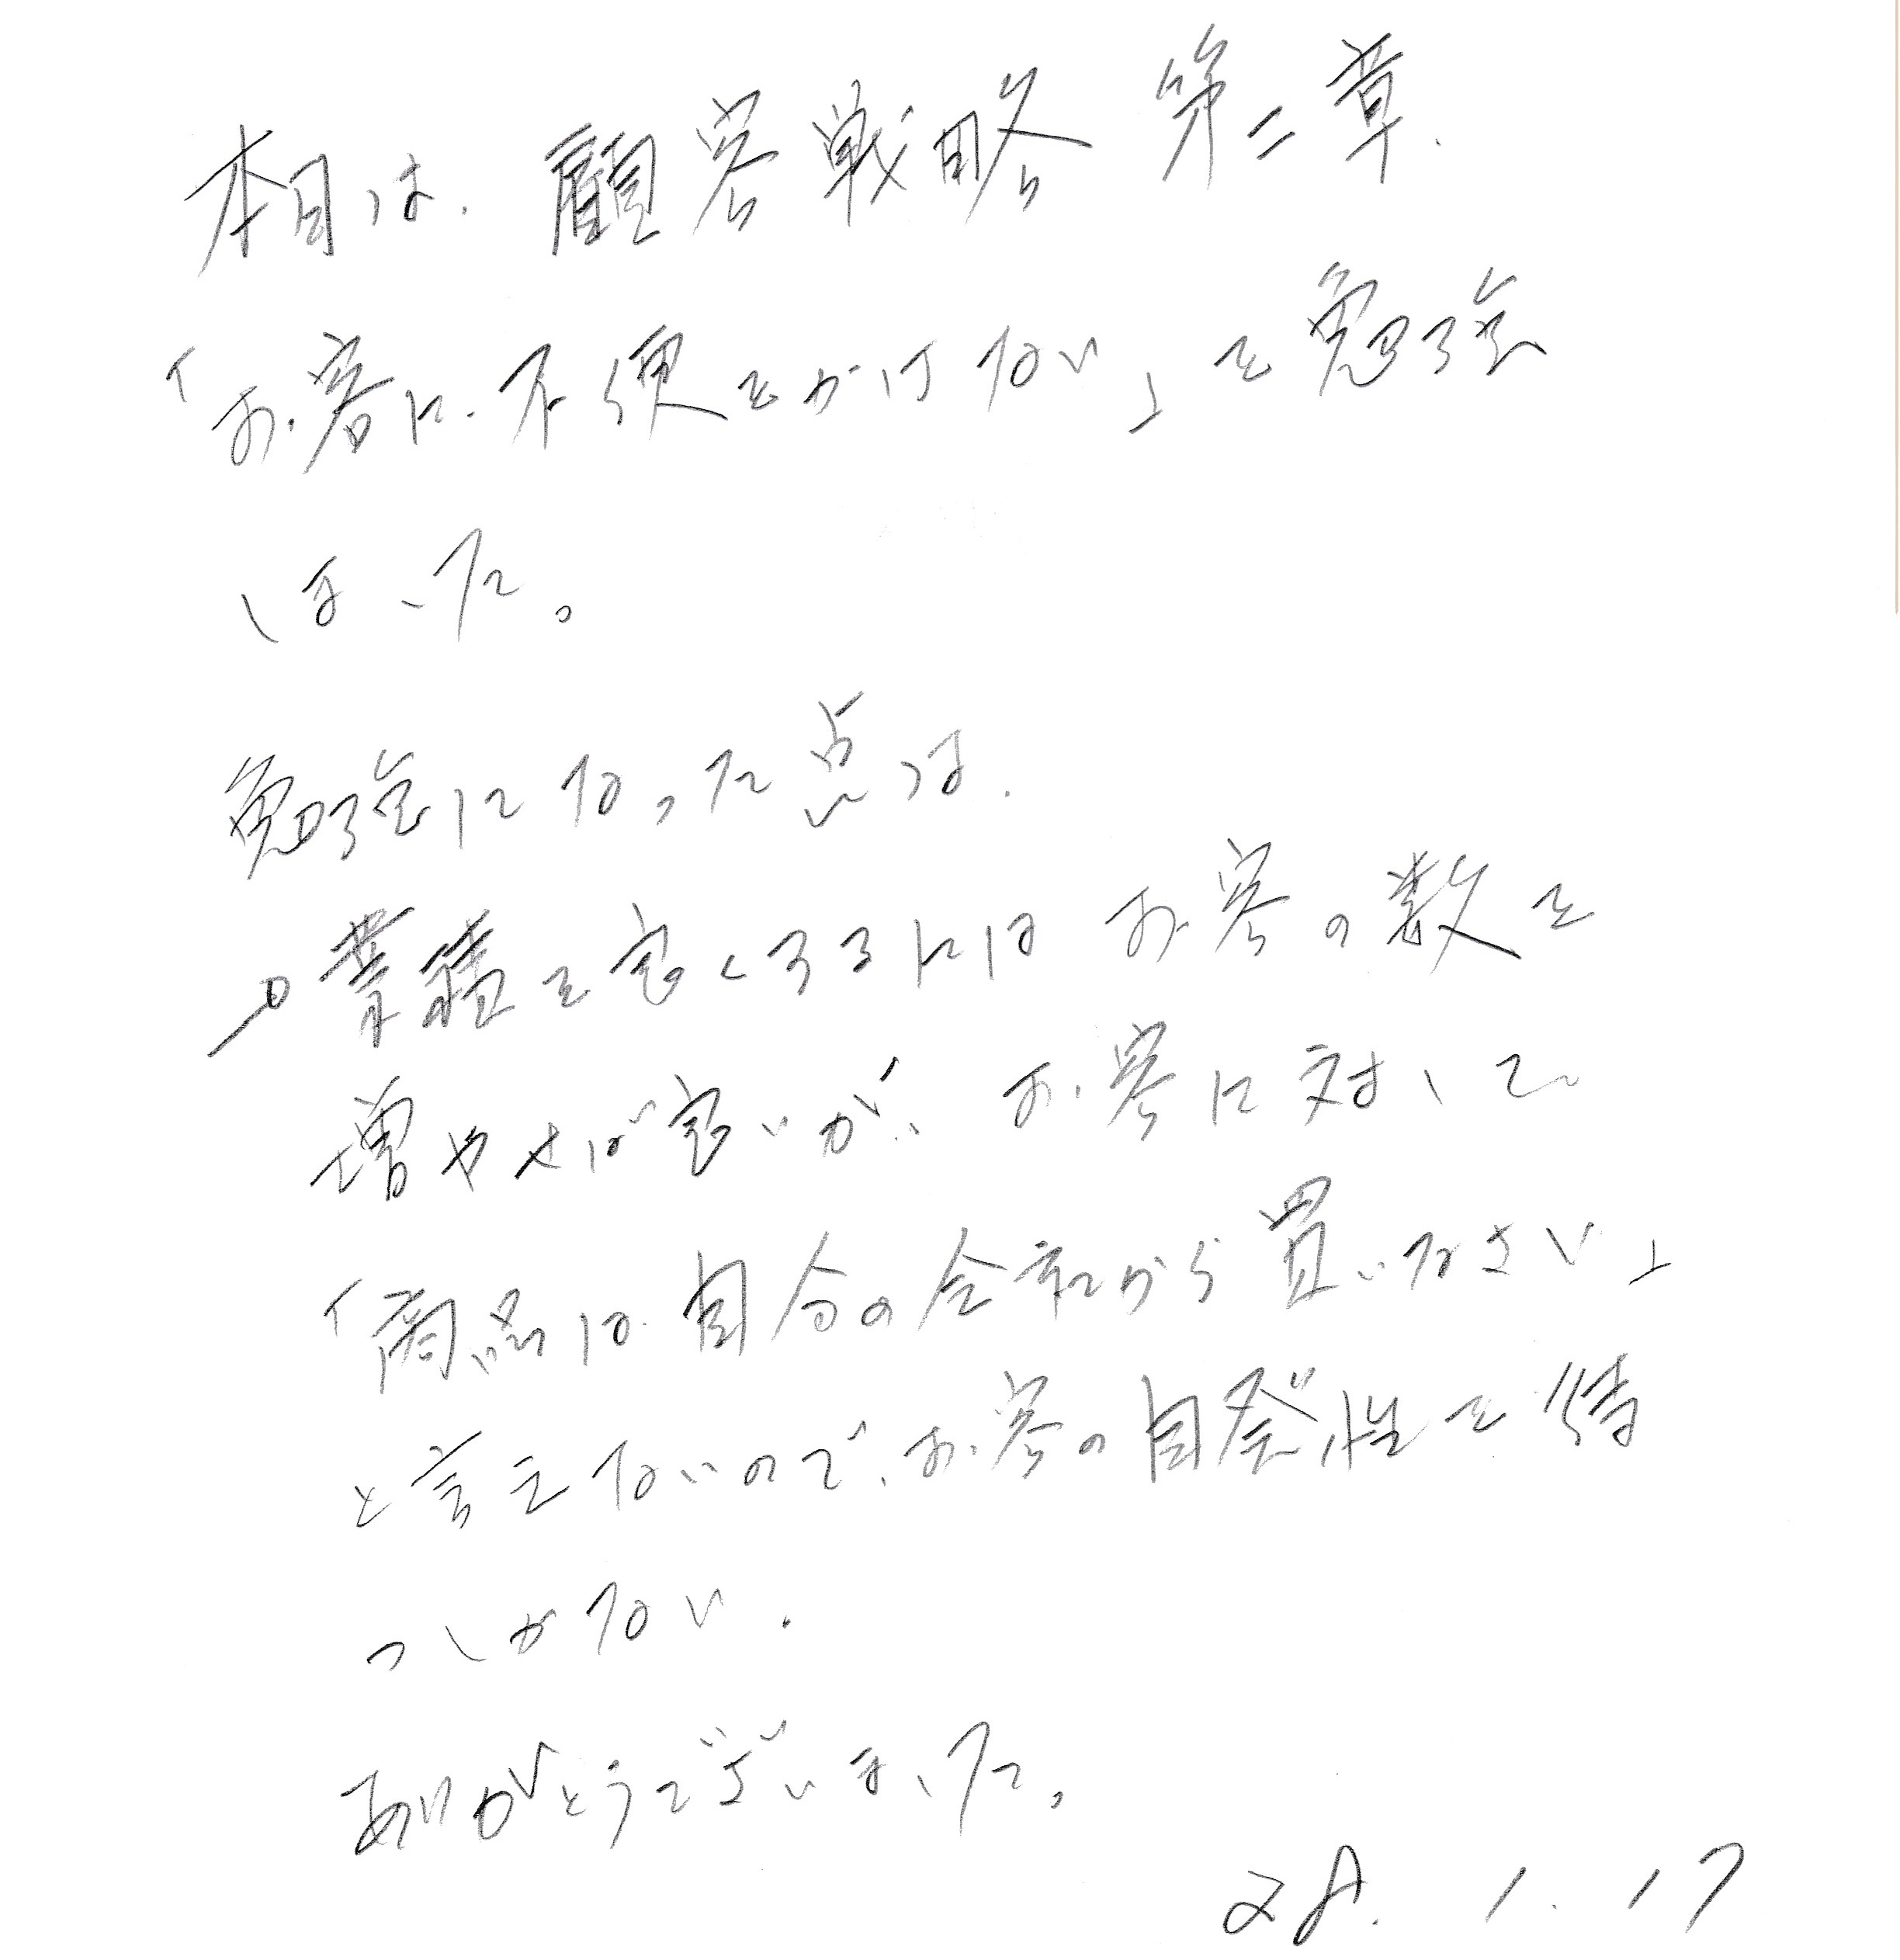 本日は、顧客戦略 第二章、
「お客に不便をかけない」を勉強
しました。
勉強になった点は、
→業績を良くするにはお客の数を
増やせば良いが、お客に対して
「商品は自分の会社から買いなさい」
と言えないので、お客の自発性を待
つしかない。
ありがとうございました。
28. 1. 17